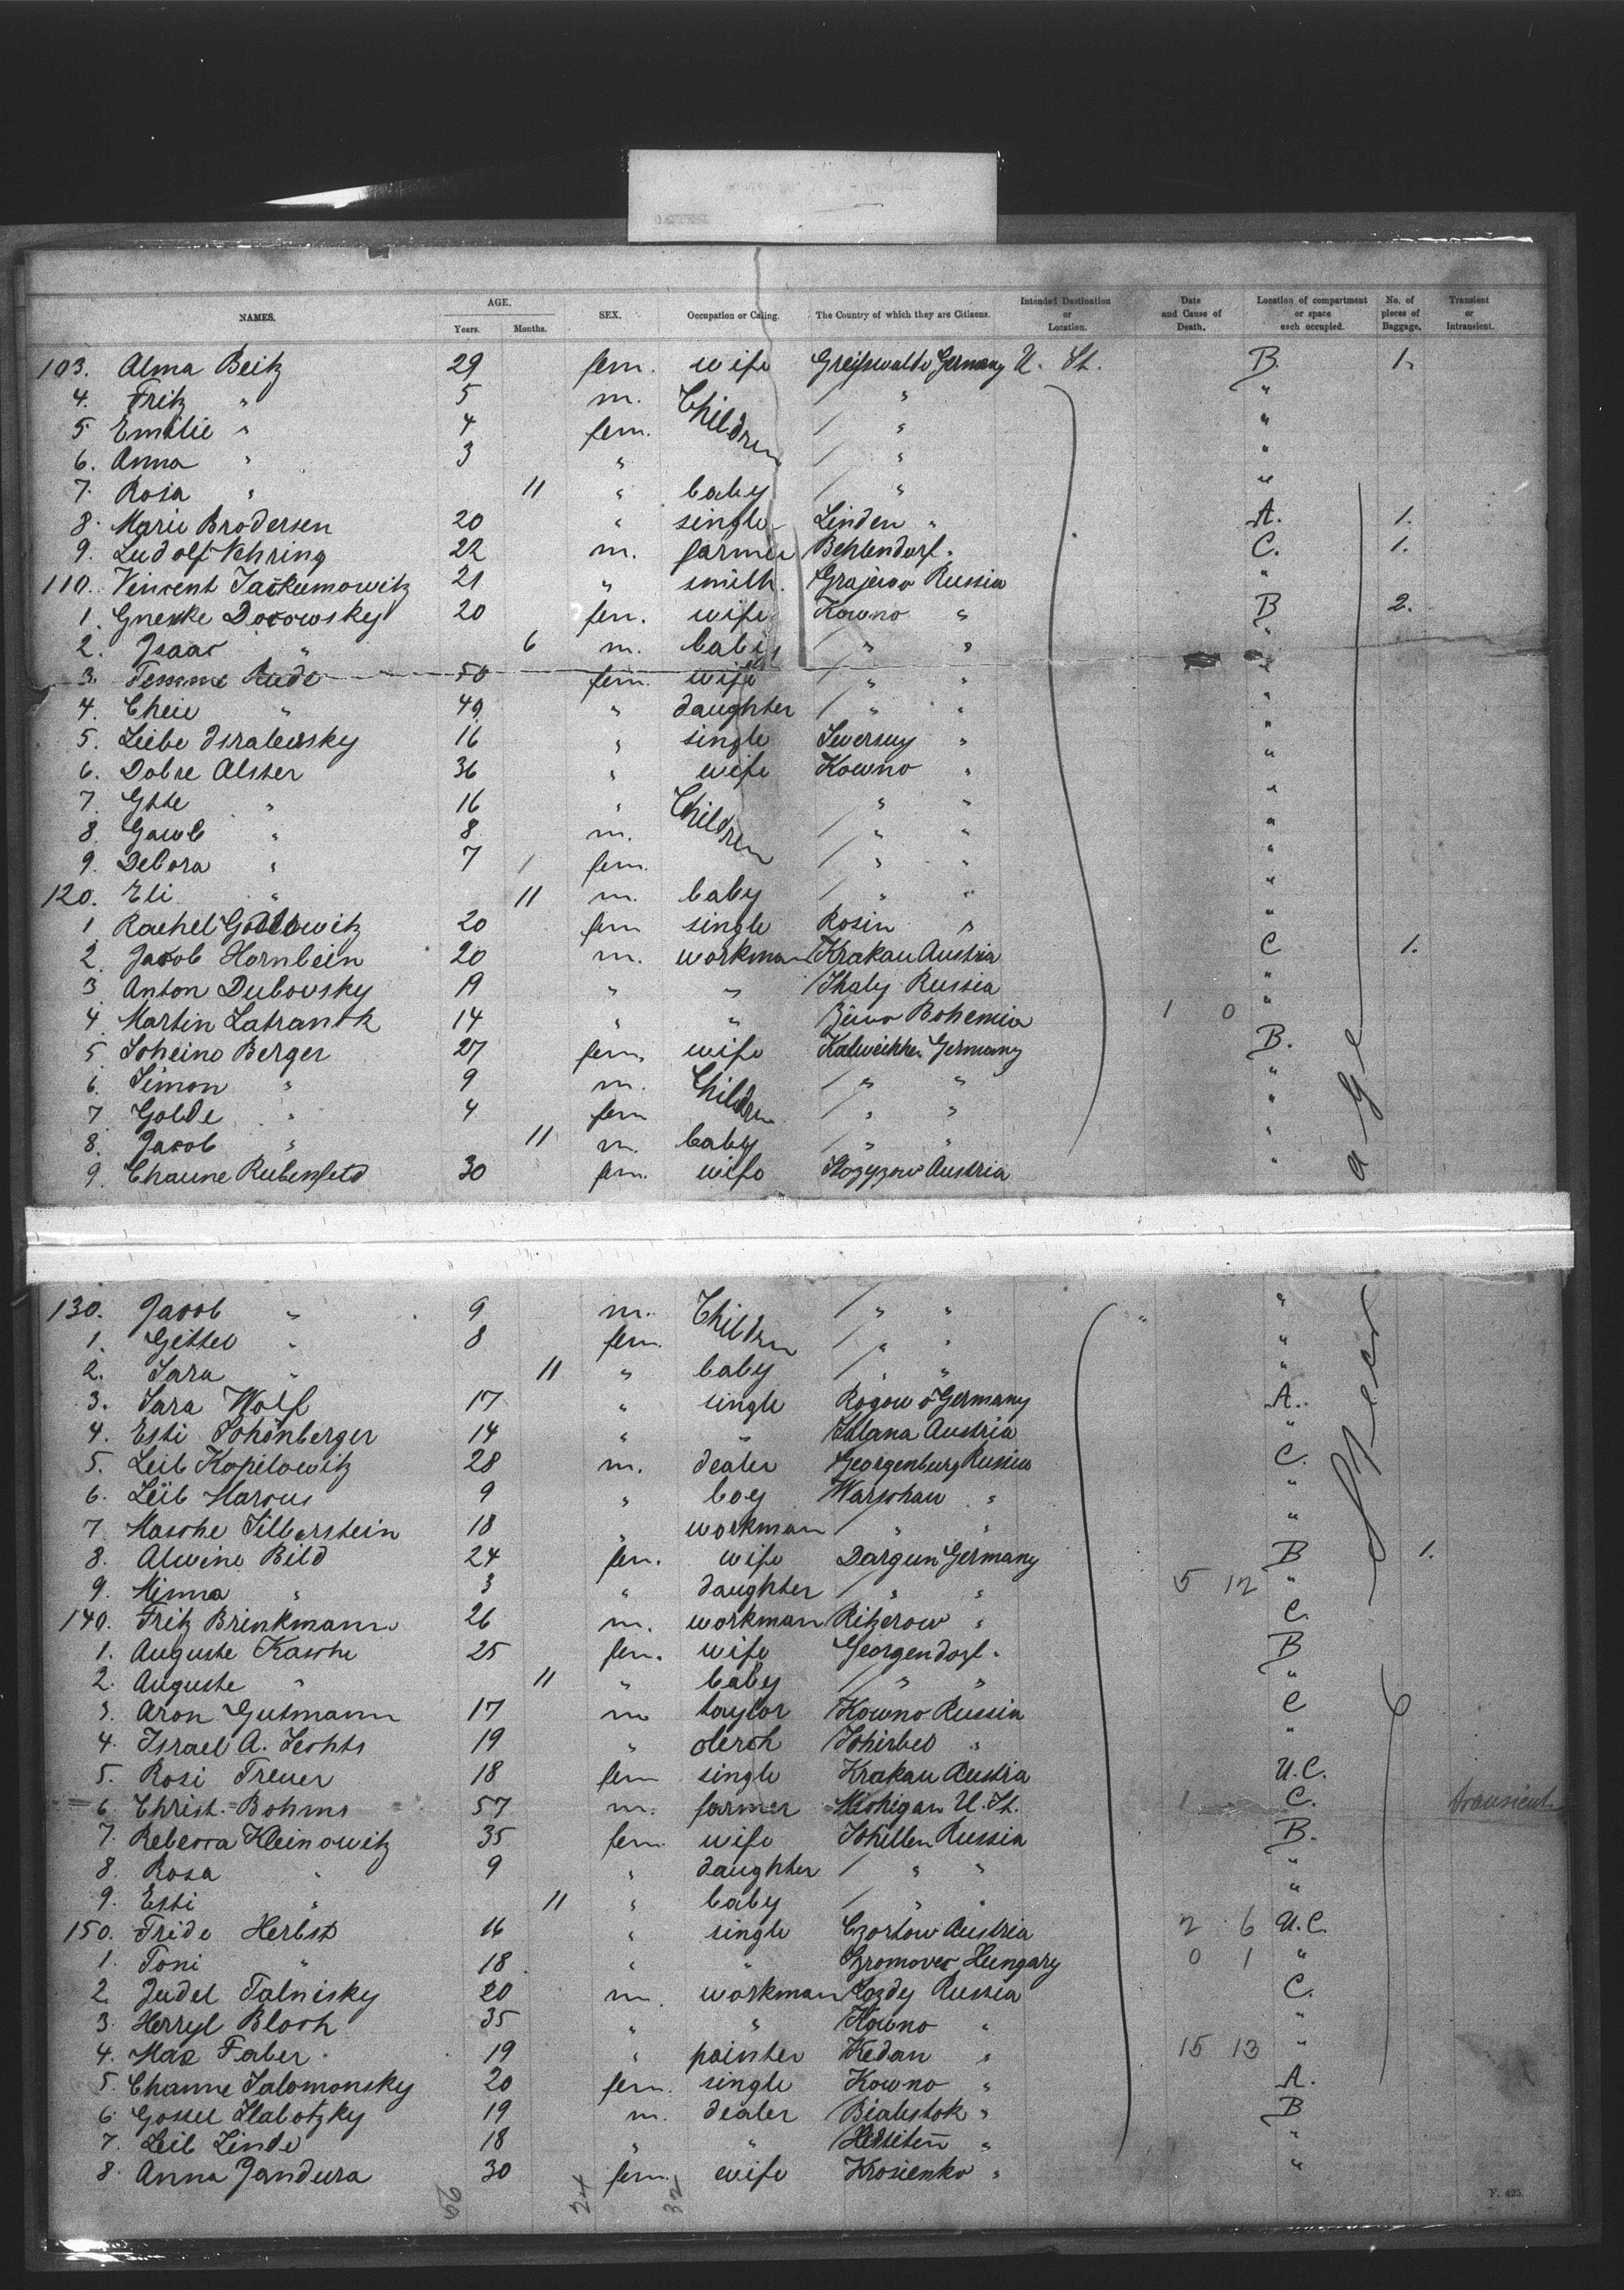 NAMES. AGE. Years. Months. SEX. Occupation or Calling. The Country of which they are Citizens. Intended Destination or Location. Date and Cause of Death. Location of compartment or space each occupied. No. of pieces of Baggage. Transient or Intransient.
103. Alma Beitz 29 fem. wife Greifswalde Germany U. St. B. 1.
4. Fritz " 5 m. Children / " "
5 Emilie " 4 fem. / " "
6. Anna " 3 " / " "
7. Rosa " 11 " baby / " "
8. Marie Brodersen 20 " single Linden " A. 1.
9. Ludolf Nehring 22 m. farmer Behlendorf " C. 1.
110. Vincent 21 " smith Grajewo Russia "
1. 20 fem. wife Kowno " B 2.
2. Isaac " 6 m. baby / " " "
3. Rude 50 fem. wife / " " "
4. " 49 " daughter / " " "
5. Liebe 16 " single " "
6. Dobre Alster 36 " wife Kowno " "
7. Gitte " 16 " Children " " "
8 " 8 m. / " " "
9. Debora " 7 fem. / " " "
120. Eli " 11 m. baby / " " "
1 Rachel 20 fem single Rosin " "
2. Jacob Hornbein 20 m. workman Krakau Austria C 1.
3 Anton Dubovsky 19 " " Russia "
4. Martin 14 " " Bohemia 1 0 "
5 Scheine Berger 27 fem. wife Germany B.
6. Simon " 9 m. Children / " " "
7 Golde " 4 fem / " " "
8. Jacob " 11 m. baby / " " "
9. Chaune Rubenfeld 30 fem. wife Austria "
130. Jacob " 9 m. Children / " " "
1. Gittel " 8 fem. / " " "
2. Sara " 11 " baby / " " "
3. Sara Wolf 17 " single Rogowo Germany A.
4. Esti Schönberger 14 " " Austria "
5. Leib Kopilowitz 28 m. dealer Georgenburg Russia C.
6. Leib Marcus 9 " boy Warschau " "
7. Masche Silberstein 18 " workman / " " "
8. Alwine Bild 24 fem. wife Dargun Germany B 1.
9. Minna " 3 " daughter / " " 5 12 "
140. Fritz Brinkmann 26 m. workman Ritzerow " C.
1. Auguste Kasche 25 fem. wife Georgendorf " B
2. Auguste " 11 " baby / " " "
3. Aron Gutmann 17 m taylor Kowno Russia C
4. Israel A. 19 " clerch " "
5. Rosi Treuer 18 fem single Krakau Austria U.C.
6. Christ. Bohms 57 m. farmer Michigan U. St. 1 C. transient.
7. Rebecca Kleinowitz 35 fem. wife Schillen Russia B.
8. Rosa " 9 " daughter / " " "
9. Esti " 11 " baby / " " "
150. Fride Herbst 16 " single Czortow Austria 2 6 U.C.
1. Toni " 18 " " Hungary 0 1 "
2. Judel Talnisky 20 m. workman Russia C.
3. Herryl Bloch 35 " " Kowno " "
4. Max Faber 19 " painter Kedan " 15 13 "
5. Channe Salomonsky 20 fem. single Kowno " A.
6. Gossel Slabotzky 19 m. dealer Bialistok " B
7. Leib Linde 18 " " " "
8. Anna Jandura 30 fem. wife Krosienko " "
Steerage
66 24 32
F. 425.